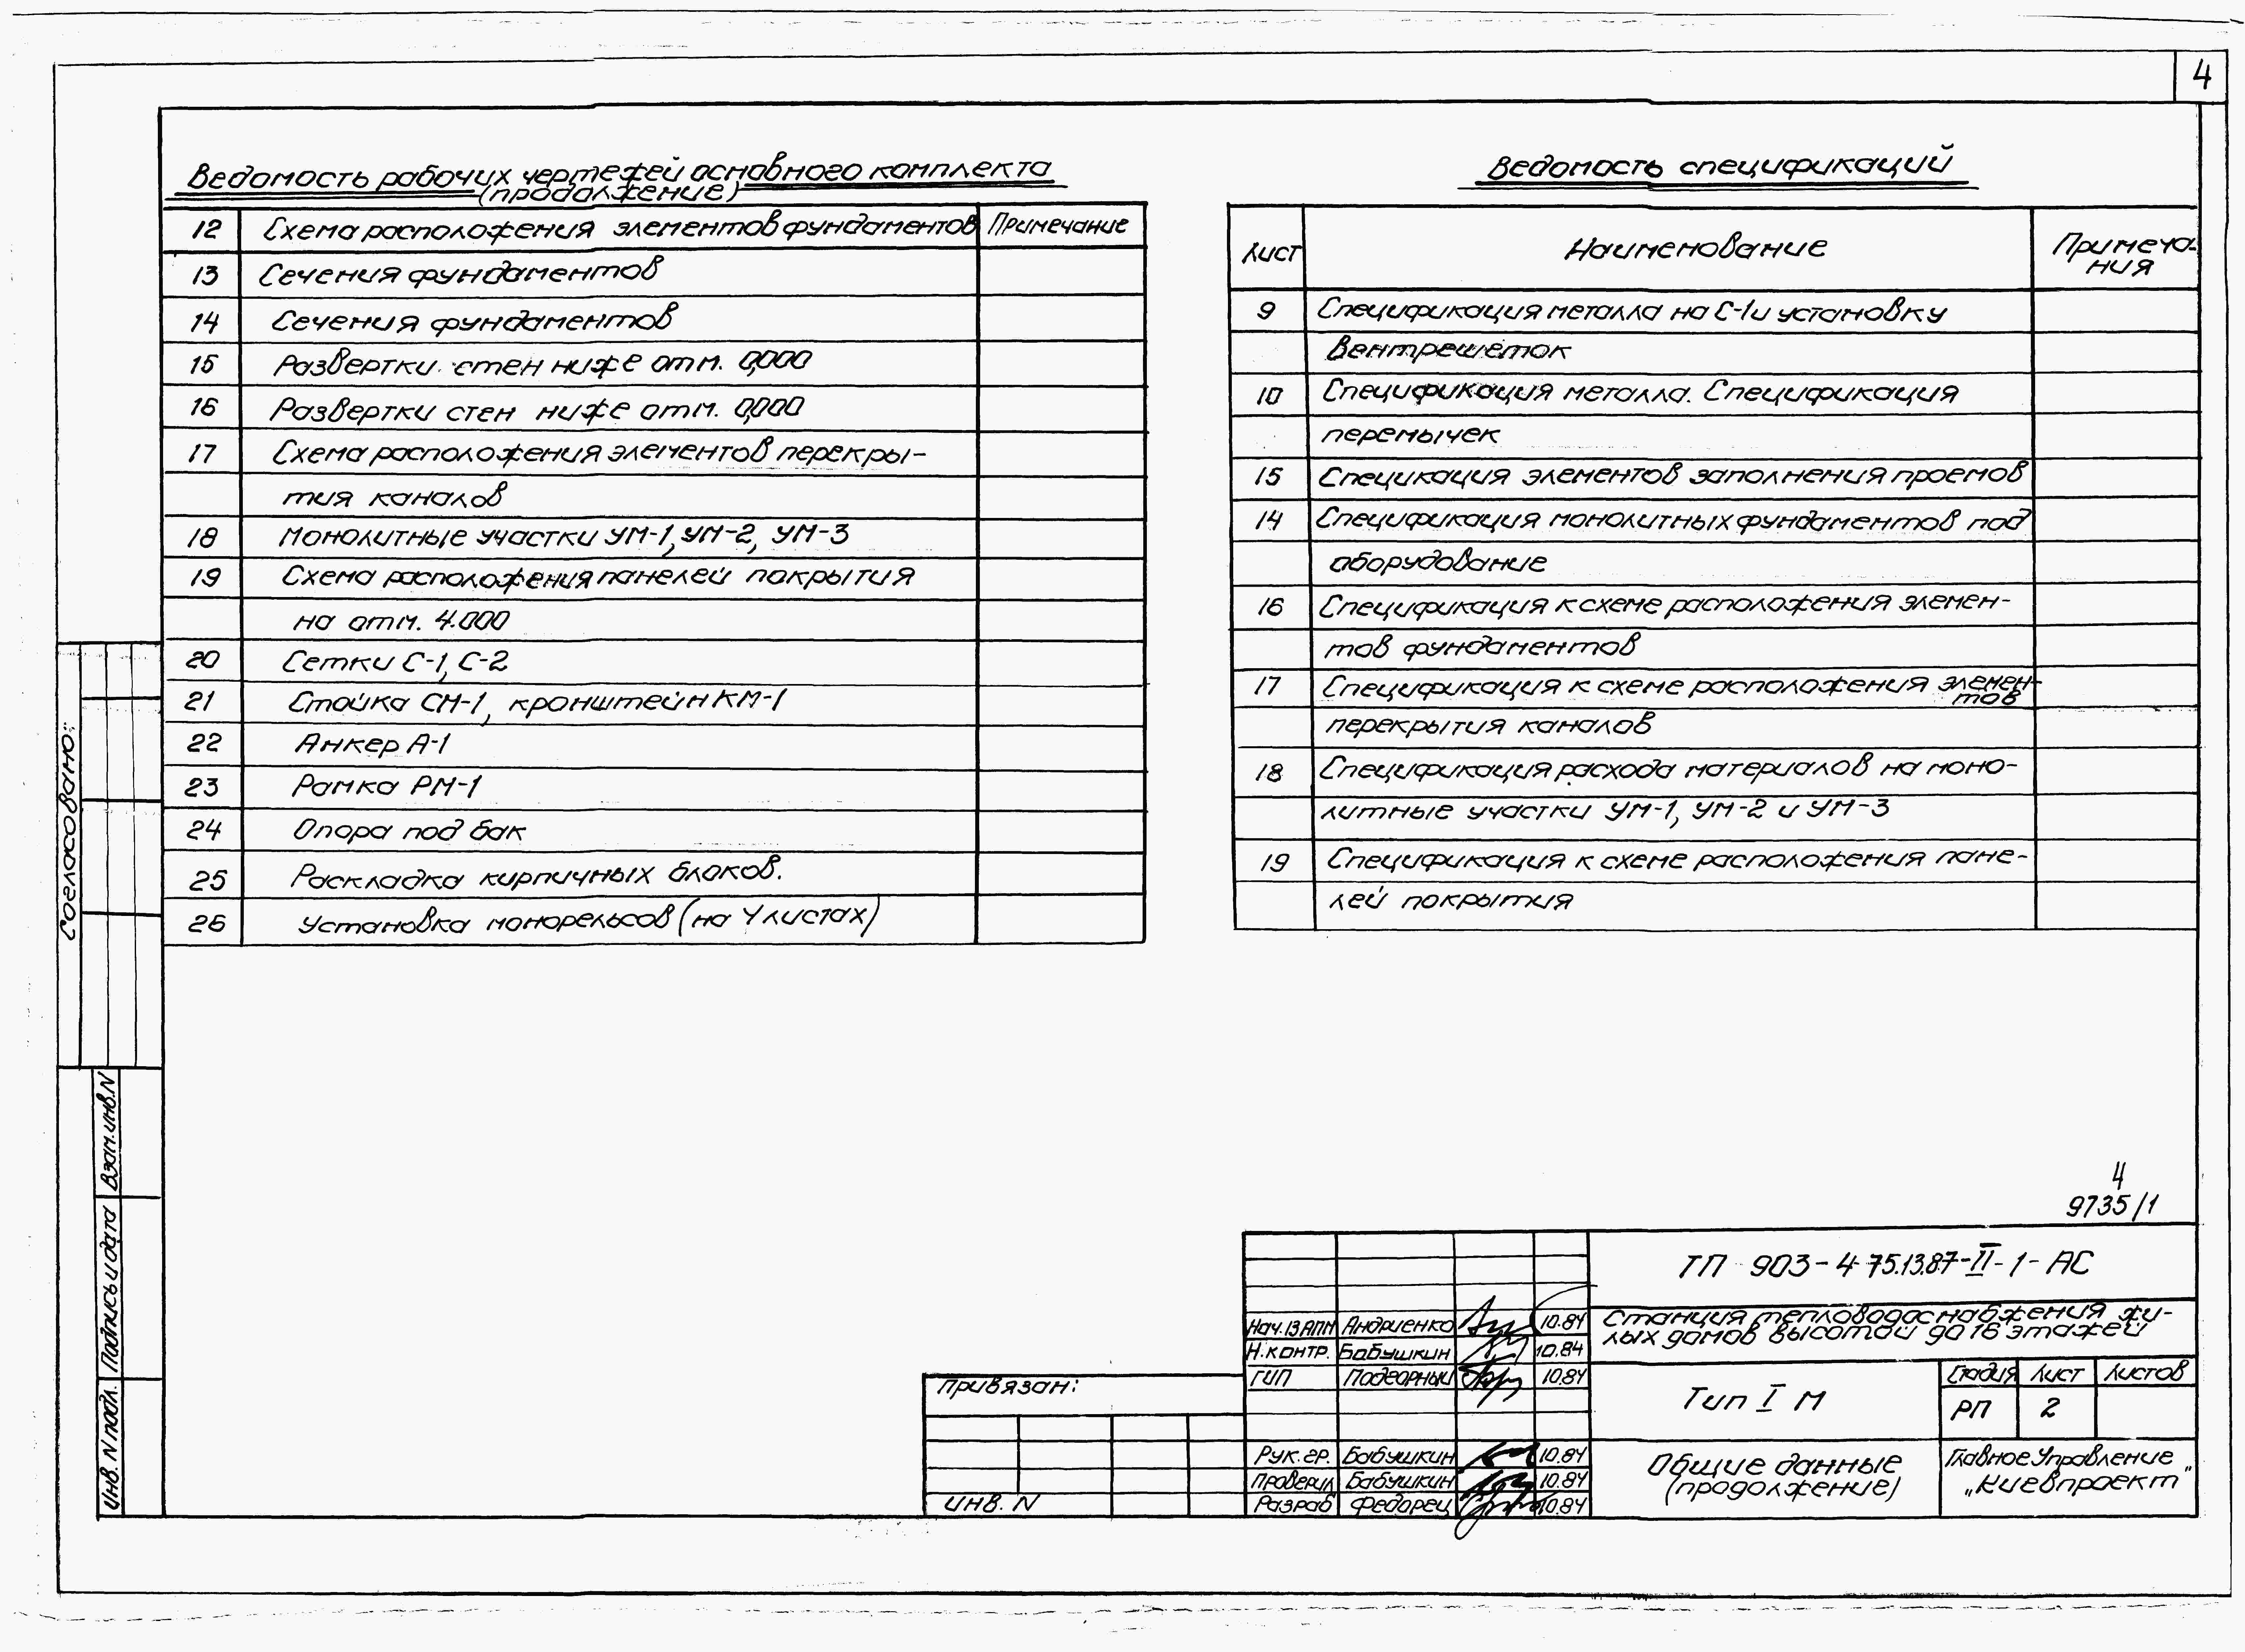 4
Ведомость рабочих чертежей основного комплекта
(продолжение)
12 Схема расположения элементов фундаментов Примечание
13 Сечения фундаментов
14 Сечения фундаментов
15 Развертки стен ниже отм. 0,000
16 Развертки стен ниже отм. 0,000
17 Схема расположения элементов перекры-
тия каналов
18 Монолитные участки УМ-1, УМ-2, УМ-3
19 Схема расположения панелей покрытия
на отм. 4.000
20 Сетки С-1, С-2
21 Стойка СМ-1, кронштейн КМ-1
22 Анкер А-1
23 Рамка РМ-1
24 Опора под бак
25 Раскладка кирпичных блоков.
26 Установка монорельсов (на 4 листах)
Ведомость спецификаций
Лист Наименование Примеча-
ния
9 Спецификация металла на С-1 и установку
вентрешеток
10 Спецификация металла. Спецификация
перемычек
15 Специкация элементов заполнения проемов
14 Спецификация монолитных фундаментов под
оборудование
16 Спецификация к схеме расположения элемен-
тов фундаментов
17 Спецификация к схеме расположения элемен-
тов
перекрытия каналов
18 Спецификация расхода материалов на моно-
литные участки УМ-1, УМ-2 и УМ-3
19 Спецификация к схеме расположения пане-
лей покрытия
Согласовано:
Взам.инв.N
Подпись и дата
Инв. N подл.
4
9735/1
ТП 903-4-75.13.87-II-1-АС
Станция тепловодоснабжения жи-
лых домов высотой до 16 этажей
Нач.13АПМ Андриенко 10.84
Н.контр. Бабушкин 10.84
ГИП Подгорный 10.84
Рук.гр. Бабушкин 10.84
Проверил Бабушкин 10.84
Разраб Федорец 10.84
Тип I М
Стадия Лист Листов
РП 2
Общие данные
(продолжение)
Главное Управление
„Киевпроект"
Привязан:
ИНВ. N